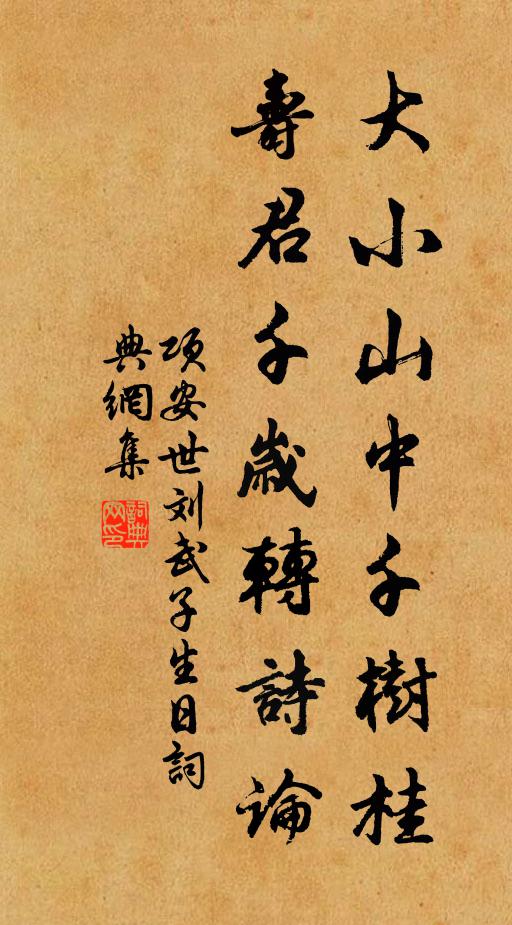 大小山中千樹桂
壽君千歲轉詩論
项安世刘武子生日詞
典網集
詞典
网印